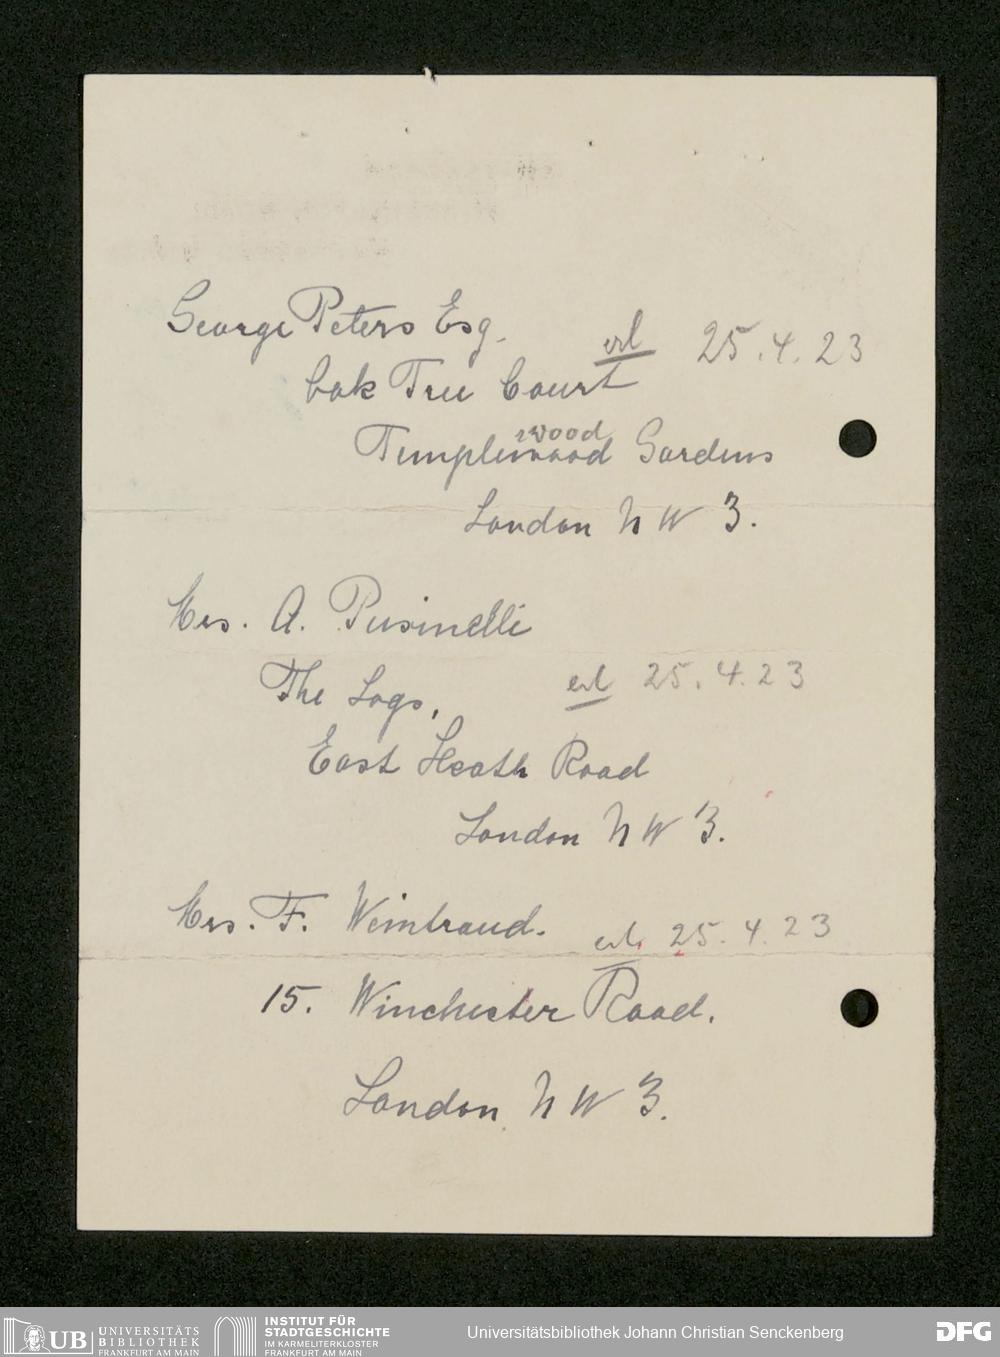 George Peters Esq.
erl 25.4.23
Oak Tree Court
wood
Templewood Gardens
London N W 3.
Mrs. A. Pusinelli
The Logs,
erl 25.4.23
East Heath Road
London N W 3.
Mrs. F. Weintraud.
erl. 25.4.23
15. Winchester Road.
London N W 3.
UB UNIVERSITÄTS
BIBLIOTHEK
FRANKFURT AM MAIN
INSTITUT FÜR
STADTGESCHICHTE
IM KARMELITERKLOSTER
FRANKFURT AM MAIN
Universitätsbibliothek Johann Christian Senckenberg
DFG